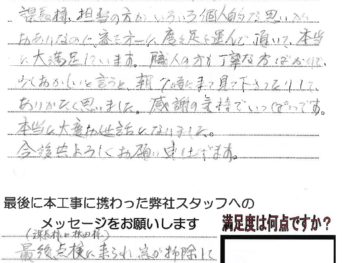 課長様、担当の方が、いろいろ個人的な思いが
おありなのに、寒さ中に、度々足を運んで頂いて、本当
に大満足しています。職人の方も丁寧な方ばかりで、
少しおかしいと言うと、朝7時にまで見て下さったりして
ありがたく思いました。感謝の気持でいっぱいです。
本当に大変お世話になりました。
今後共よろしくお願い申し上げます。
最後に本工事に携わった弊社スタッフへの
メッセージをお願いします
満足度は何点ですか?
(課長様と林田様)
最後点検に来られ、窓が掃除して